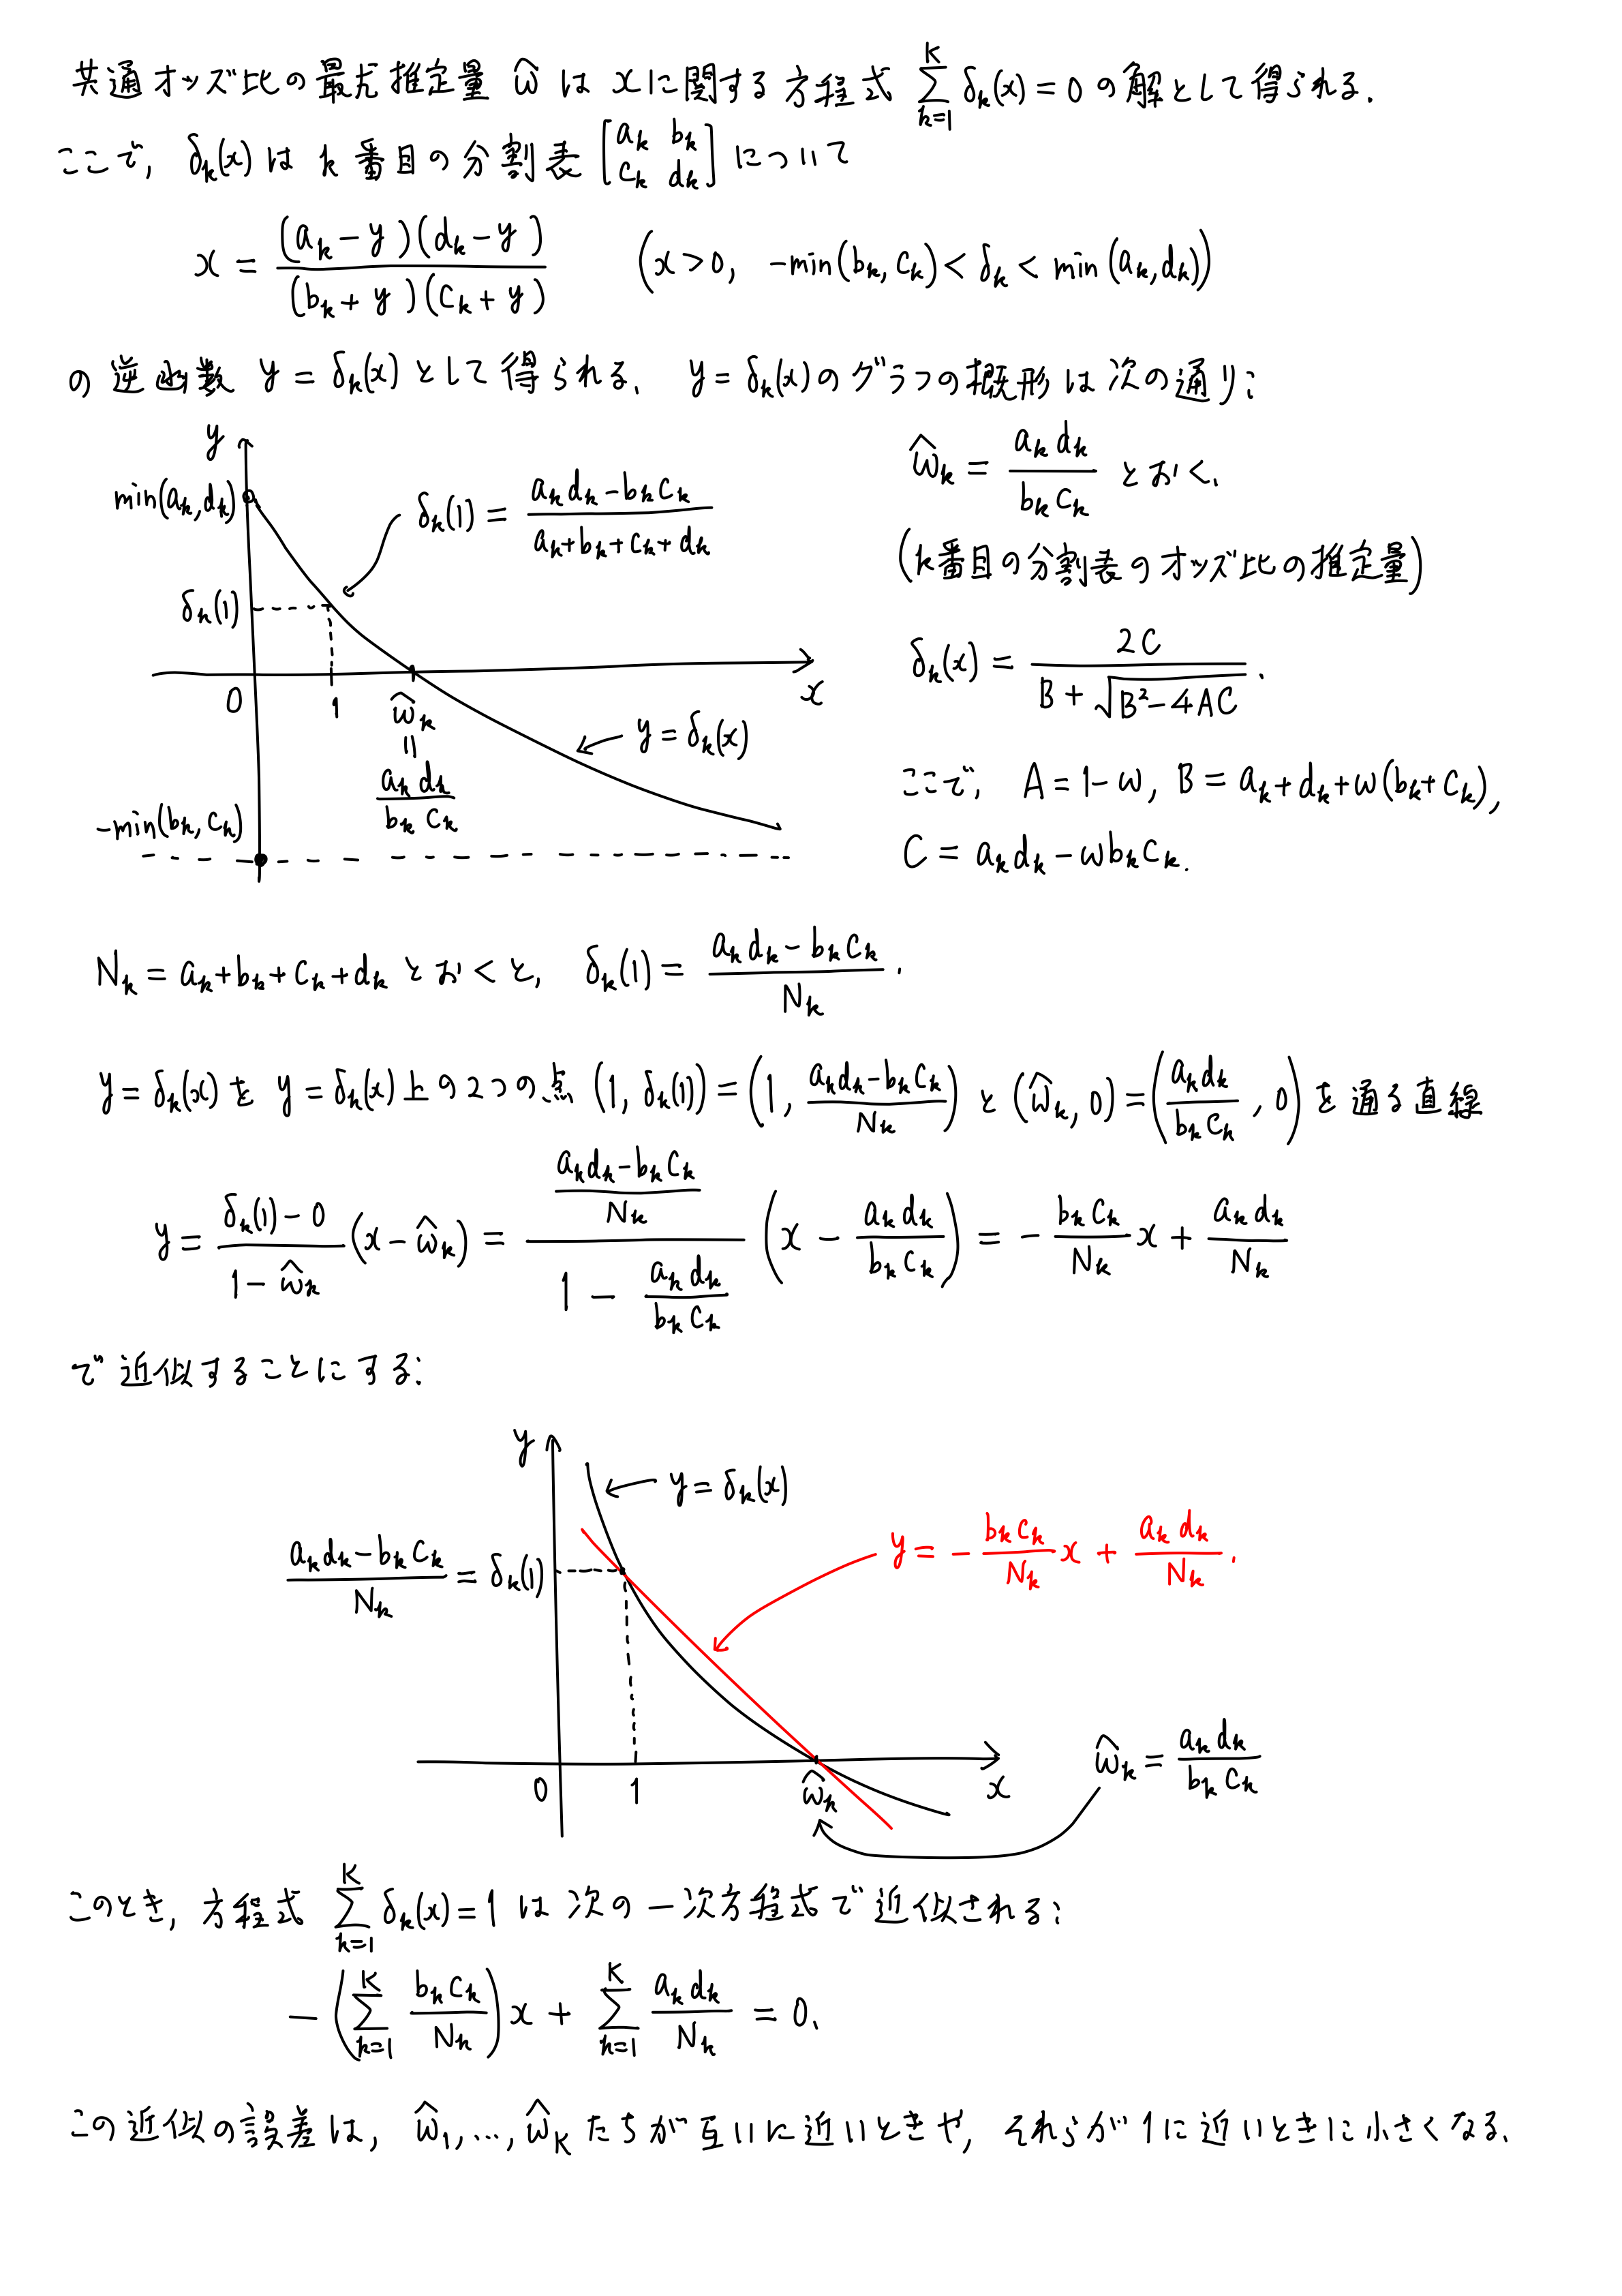 共通オッズ比の最尤推定量 ω̂ は xに関する方程式 Σ_{k=1}^{K} δ_k(x) = 0 の解として得られる.
ここで, δ_k(x) は k番目の分割表 [a_k b_k; c_k d_k] について
x = (a_k − y)(d_k − y) / (b_k + y)(c_k + y)  (x > 0, −min(b_k, c_k) < δ_k < min(a_k, d_k))
の逆函数 y = δ_k(x) として得られる. y = δ_k(x)のグラフの概形は次の通り:
y
min(a_k, d_k)
δ_k(1) = (a_k d_k − b_k c_k) / (a_k + b_k + c_k + d_k)
δ_k(1)
0
1
ω̂_k = a_k d_k / b_k c_k
x
y = δ_k(x)
−min(b_k, c_k)
ω̂_k = a_k d_k / b_k c_k とおく.
(k番目の分割表のオッズ比の推定量)
δ_k(x) = 2C / (B + √(B² − 4AC)).
ここで, A = 1 − ω, B = a_k + d_k + ω(b_k + c_k),
C = a_k d_k − ω b_k c_k.
N_k = a_k + b_k + c_k + d_k とおくと, δ_k(1) = (a_k d_k − b_k c_k) / N_k.
y = δ_k(x) を y = δ_k(x)上の2つの点 (1, δ_k(1)) = (1, (a_k d_k − b_k c_k)/N_k) と (ω̂_k, 0) = (a_k d_k / b_k c_k, 0) を通る直線
y = (δ_k(1) − 0)/(1 − ω̂_k) (x − ω̂_k) = ((a_k d_k − b_k c_k)/N_k) / (1 − a_k d_k / b_k c_k) (x − a_k d_k / b_k c_k) = − (b_k c_k / N_k) x + a_k d_k / N_k
で近似することにする:
y
y = δ_k(x)
y = − (b_k c_k / N_k) x + a_k d_k / N_k.
(a_k d_k − b_k c_k) / N_k = δ_k(1)
0
1
ω̂_k
x
ω̂_k = a_k d_k / b_k c_k
このとき, 方程式 Σ_{k=1}^{K} δ_k(x) = 1 は次の一次方程式で近似される:
− (Σ_{k=1}^{K} b_k c_k / N_k) x + Σ_{k=1}^{K} a_k d_k / N_k = 0.
この近似の誤差は, ω̂_1, ..., ω̂_K たちが互いに近いときや, それらが1に近いときに小さくなる.